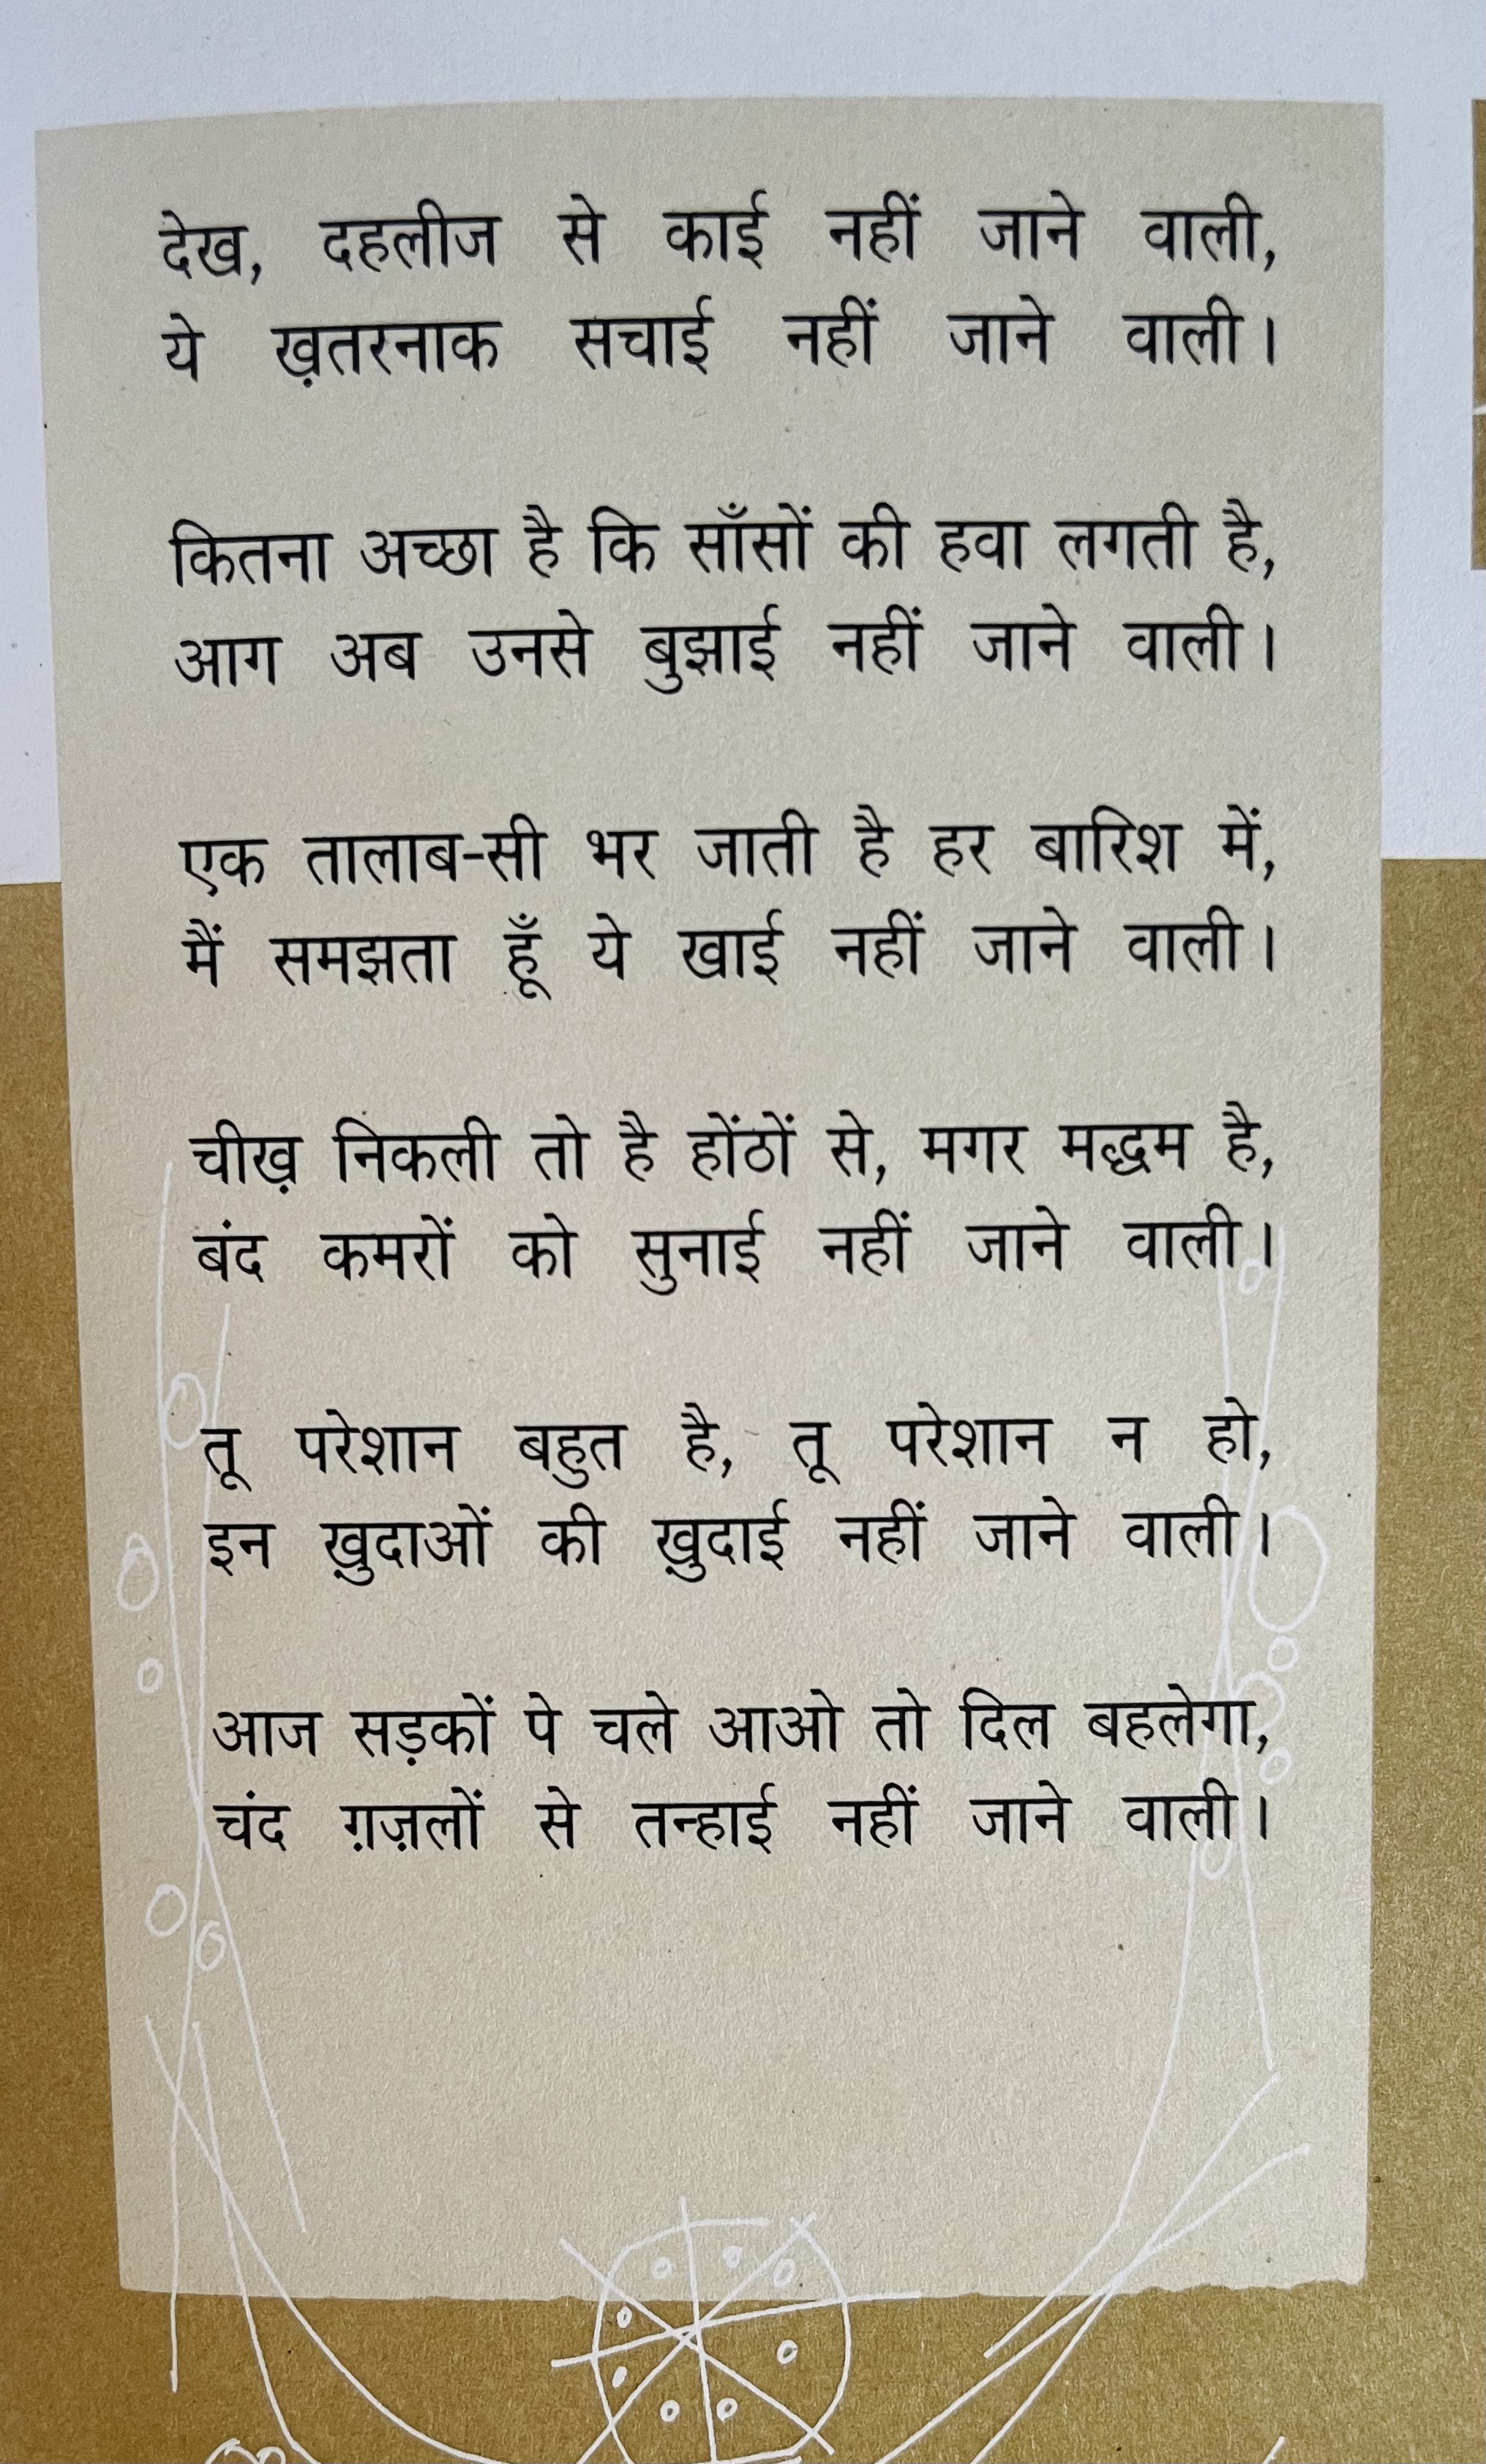 देख, दहलीज से काई नहीं जाने वाली,
ये ख़तरनाक सचाई नहीं जाने वाली।
कितना अच्छा है कि साँसों की हवा लगती है,
आग अब उनसे बुझाई नहीं जाने वाली।
एक तालाब-सी भर जाती है हर बारिश में,
मैं समझता हूँ ये खाई नहीं जाने वाली।
चीख़ निकली तो है होंठों से, मगर मद्धम है,
बंद कमरों को सुनाई नहीं जाने वाली।
तू परेशान बहुत है, तू परेशान न हो,
इन ख़ुदाओं की ख़ुदाई नहीं जाने वाली।
आज सड़कों पे चले आओ तो दिल बहलेगा,
चंद ग़ज़लों से तन्हाई नहीं जाने वाली।